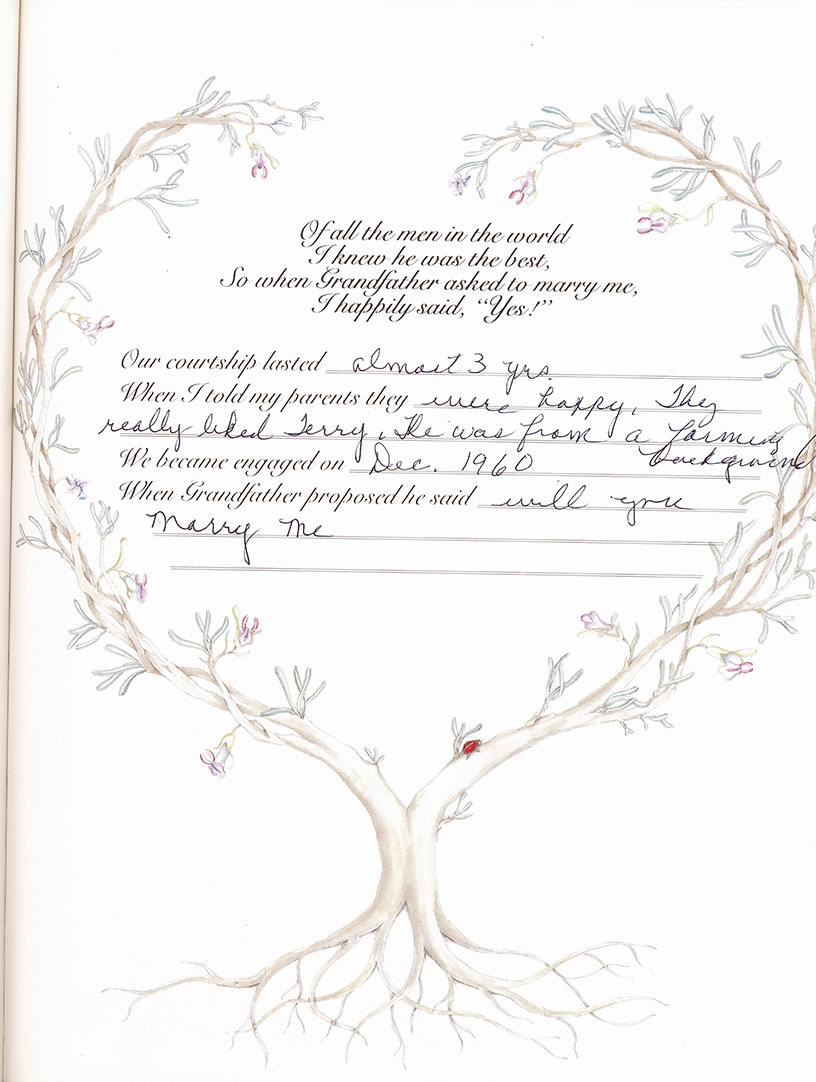 Of all the men in the world
I knew he was the best,
So when Grandfather asked to marry me,
I happily said, “Yes!”
Our courtship lasted almost 3 yrs.
When I told my parents they were happy. They
really liked Terry. He was from a farming
background
We became engaged on Dec. 1960
When Grandfather proposed he said will you
Marry Me